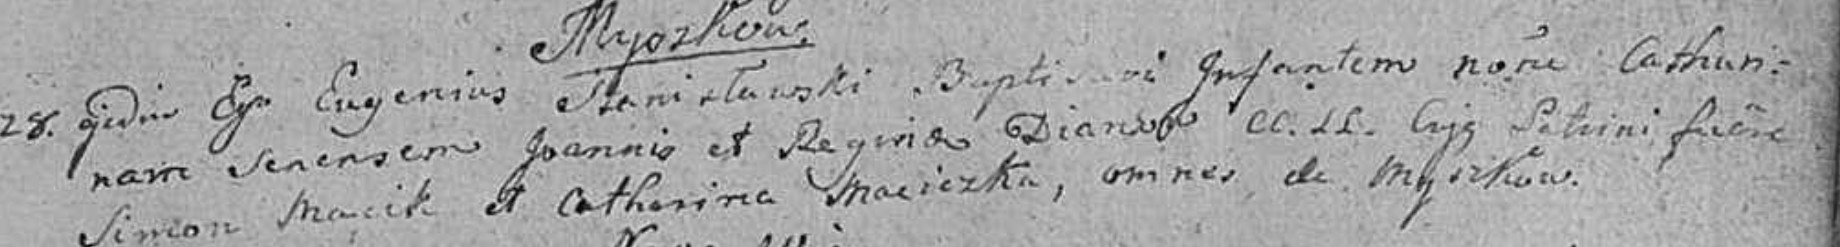 Myszkow.
28. ejdem Ego Eugenius Stanisławski Baptisavi Infantem nõie Cathari-
nam Joannis et Regina CC. LL. Cujg Patrini fuẽre
Simon Macik et Catharina Macieszka, omnes de Myszkow.